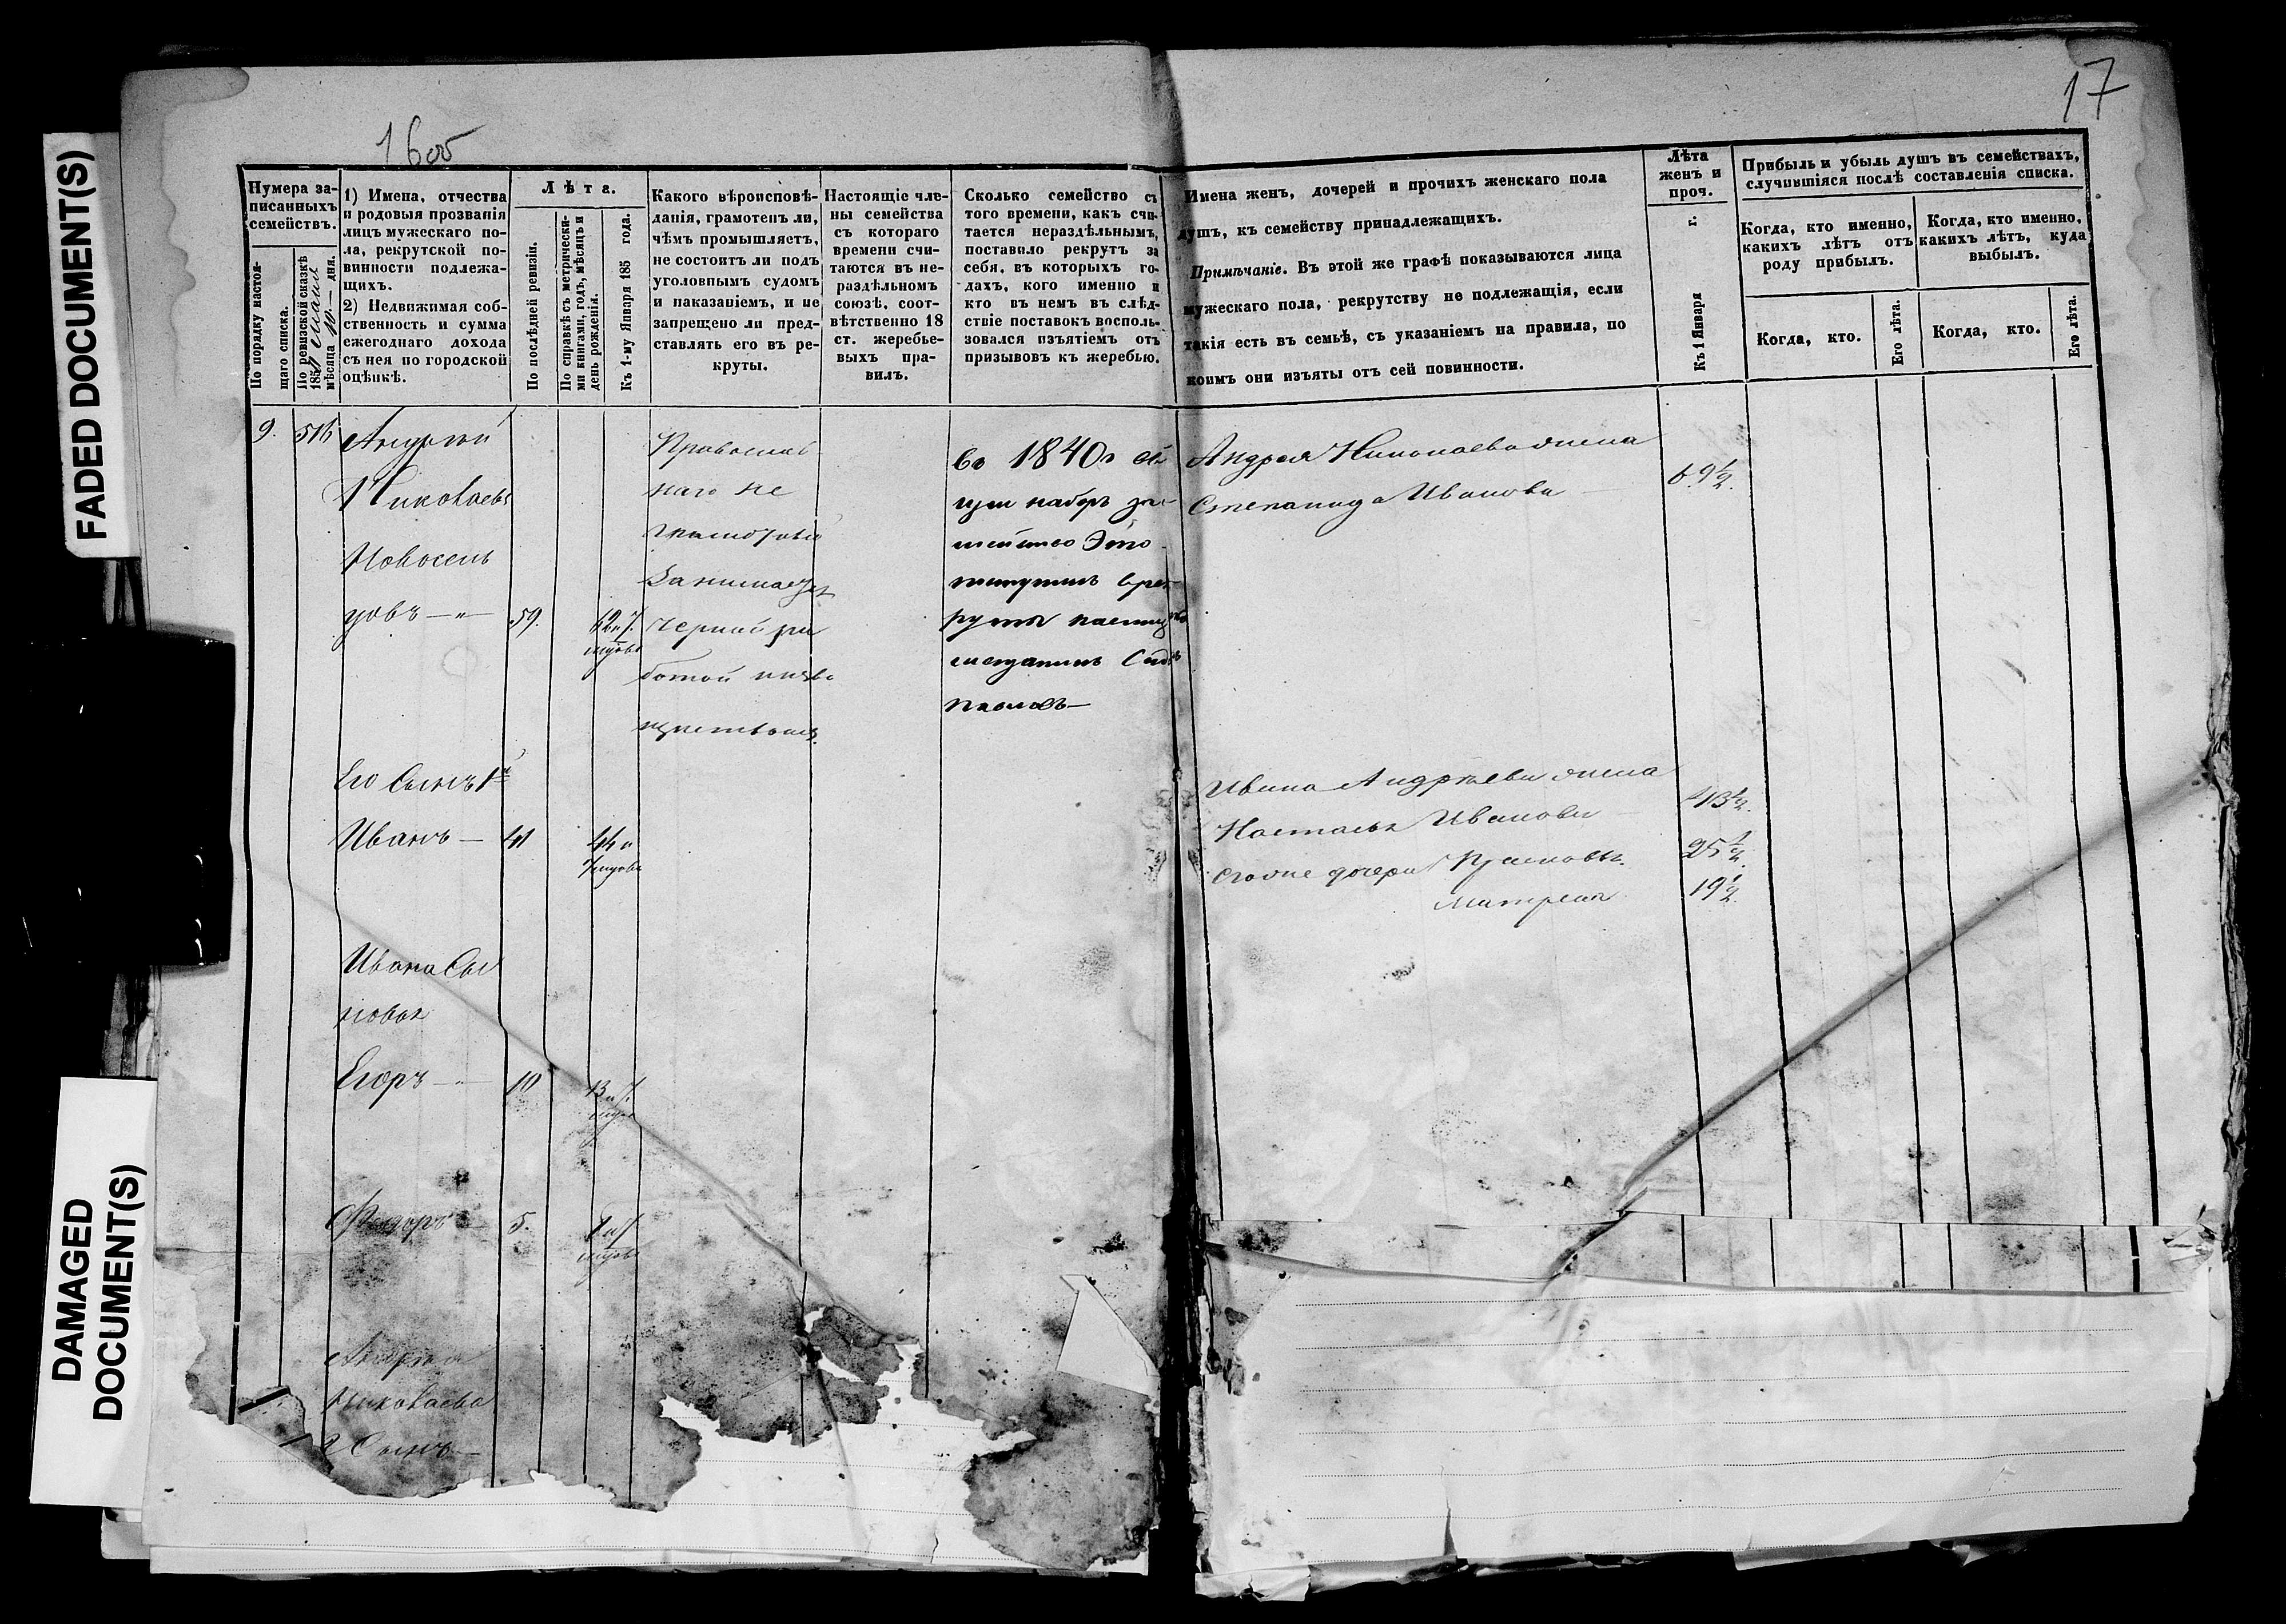 FADED DOCUMENT(S)
DAMAGED
DOCUMENT(S)
16об
17
Нумера за-
писанныхъ
семействъ.
По порядку настоя-
щаго списка.
По ревизской сказкѣ
185
мѣсяца 10 дня.
1) Имена, отчества
и родовыя прозванія
лицъ мужескаго по-
ла, рекрутской по-
винности подлежа-
щихъ.
2) Недвижимая соб-
ственность и сумма
ежегоднаго дохода
съ нея по городской
оцѣнкѣ.
Лѣта.
По послѣдней ревизіи.
По справкѣ съ метрически-
ми книгами, годъ, мѣсяцъ и
день рожденія.
Къ 1-му Января 185 года.
Какого вѣроисповѣ-
данія, грамотенъ ли,
чѣмъ промышляетъ,
не состоитъ ли подъ
уголовнымъ судомъ
и наказаніемъ, и не
запрещено ли пред-
ставлять его въ ре-
круты.
Настоящіе чле-
ны семейства
съ котораго
времени счи-
таются въ не-
раздѣльномъ
союзѣ, соот-
вѣтственно 18
ст. жеребье-
выхъ пра-
вилъ.
Сколько семейство съ
того времени, какъ счи-
тается нераздѣльнымъ,
поставило рекрутъ за
себя, въ которыхъ го-
дахъ, кого именно и
кто въ немъ въ слѣд-
ствіе поставокъ восполь-
зовался изъятіемъ отъ
призывовъ къ жеребью.
Имена женъ, дочерей и прочихъ женскаго пола
душъ, къ семейству принадлежащихъ.
Примѣчаніе. Въ этой же графѣ показываются лица
мужескаго пола, рекрутству не подлежащія, если
такія есть въ семьѣ, съ указаніемъ на правила, по
коимъ они изъяты отъ сей повинности.
Лѣта
женъ и
проч.
Къ 1 Января г.
Прибыль и убыль душъ въ семействахъ,
случившіяся послѣ составленія списка.
Когда, кто именно,
какихъ лѣтъ отъ
роду прибылъ.
Когда, кто именно,
какихъ лѣтъ, куда
выбылъ.
Когда, кто.
Его лѣта.
Когда, кто.
Его лѣта.
9.
Андрей
Николаевъ
Новосель
цовъ — „ — 59.
Православ
наго не
грамотный
Занимается
черной ра
ботой
въ 1840
наборъ
семейство
рекруты
мещанинъ
Павловъ —
Андрея Николаева жена
Степанида Иванова 69½.
Его Сынъ 1й
Иванъ — 41 44 и
Ивана Андреева жена
Настасья Иванова 43½.
его же дочери 25½.
Матрена 19½.
Ивана Сы
новья
Егоръ — „ — 10 13 и 7.
Федоръ — 5. 8 и 7
Андрея
Николаева
2 Сынъ —